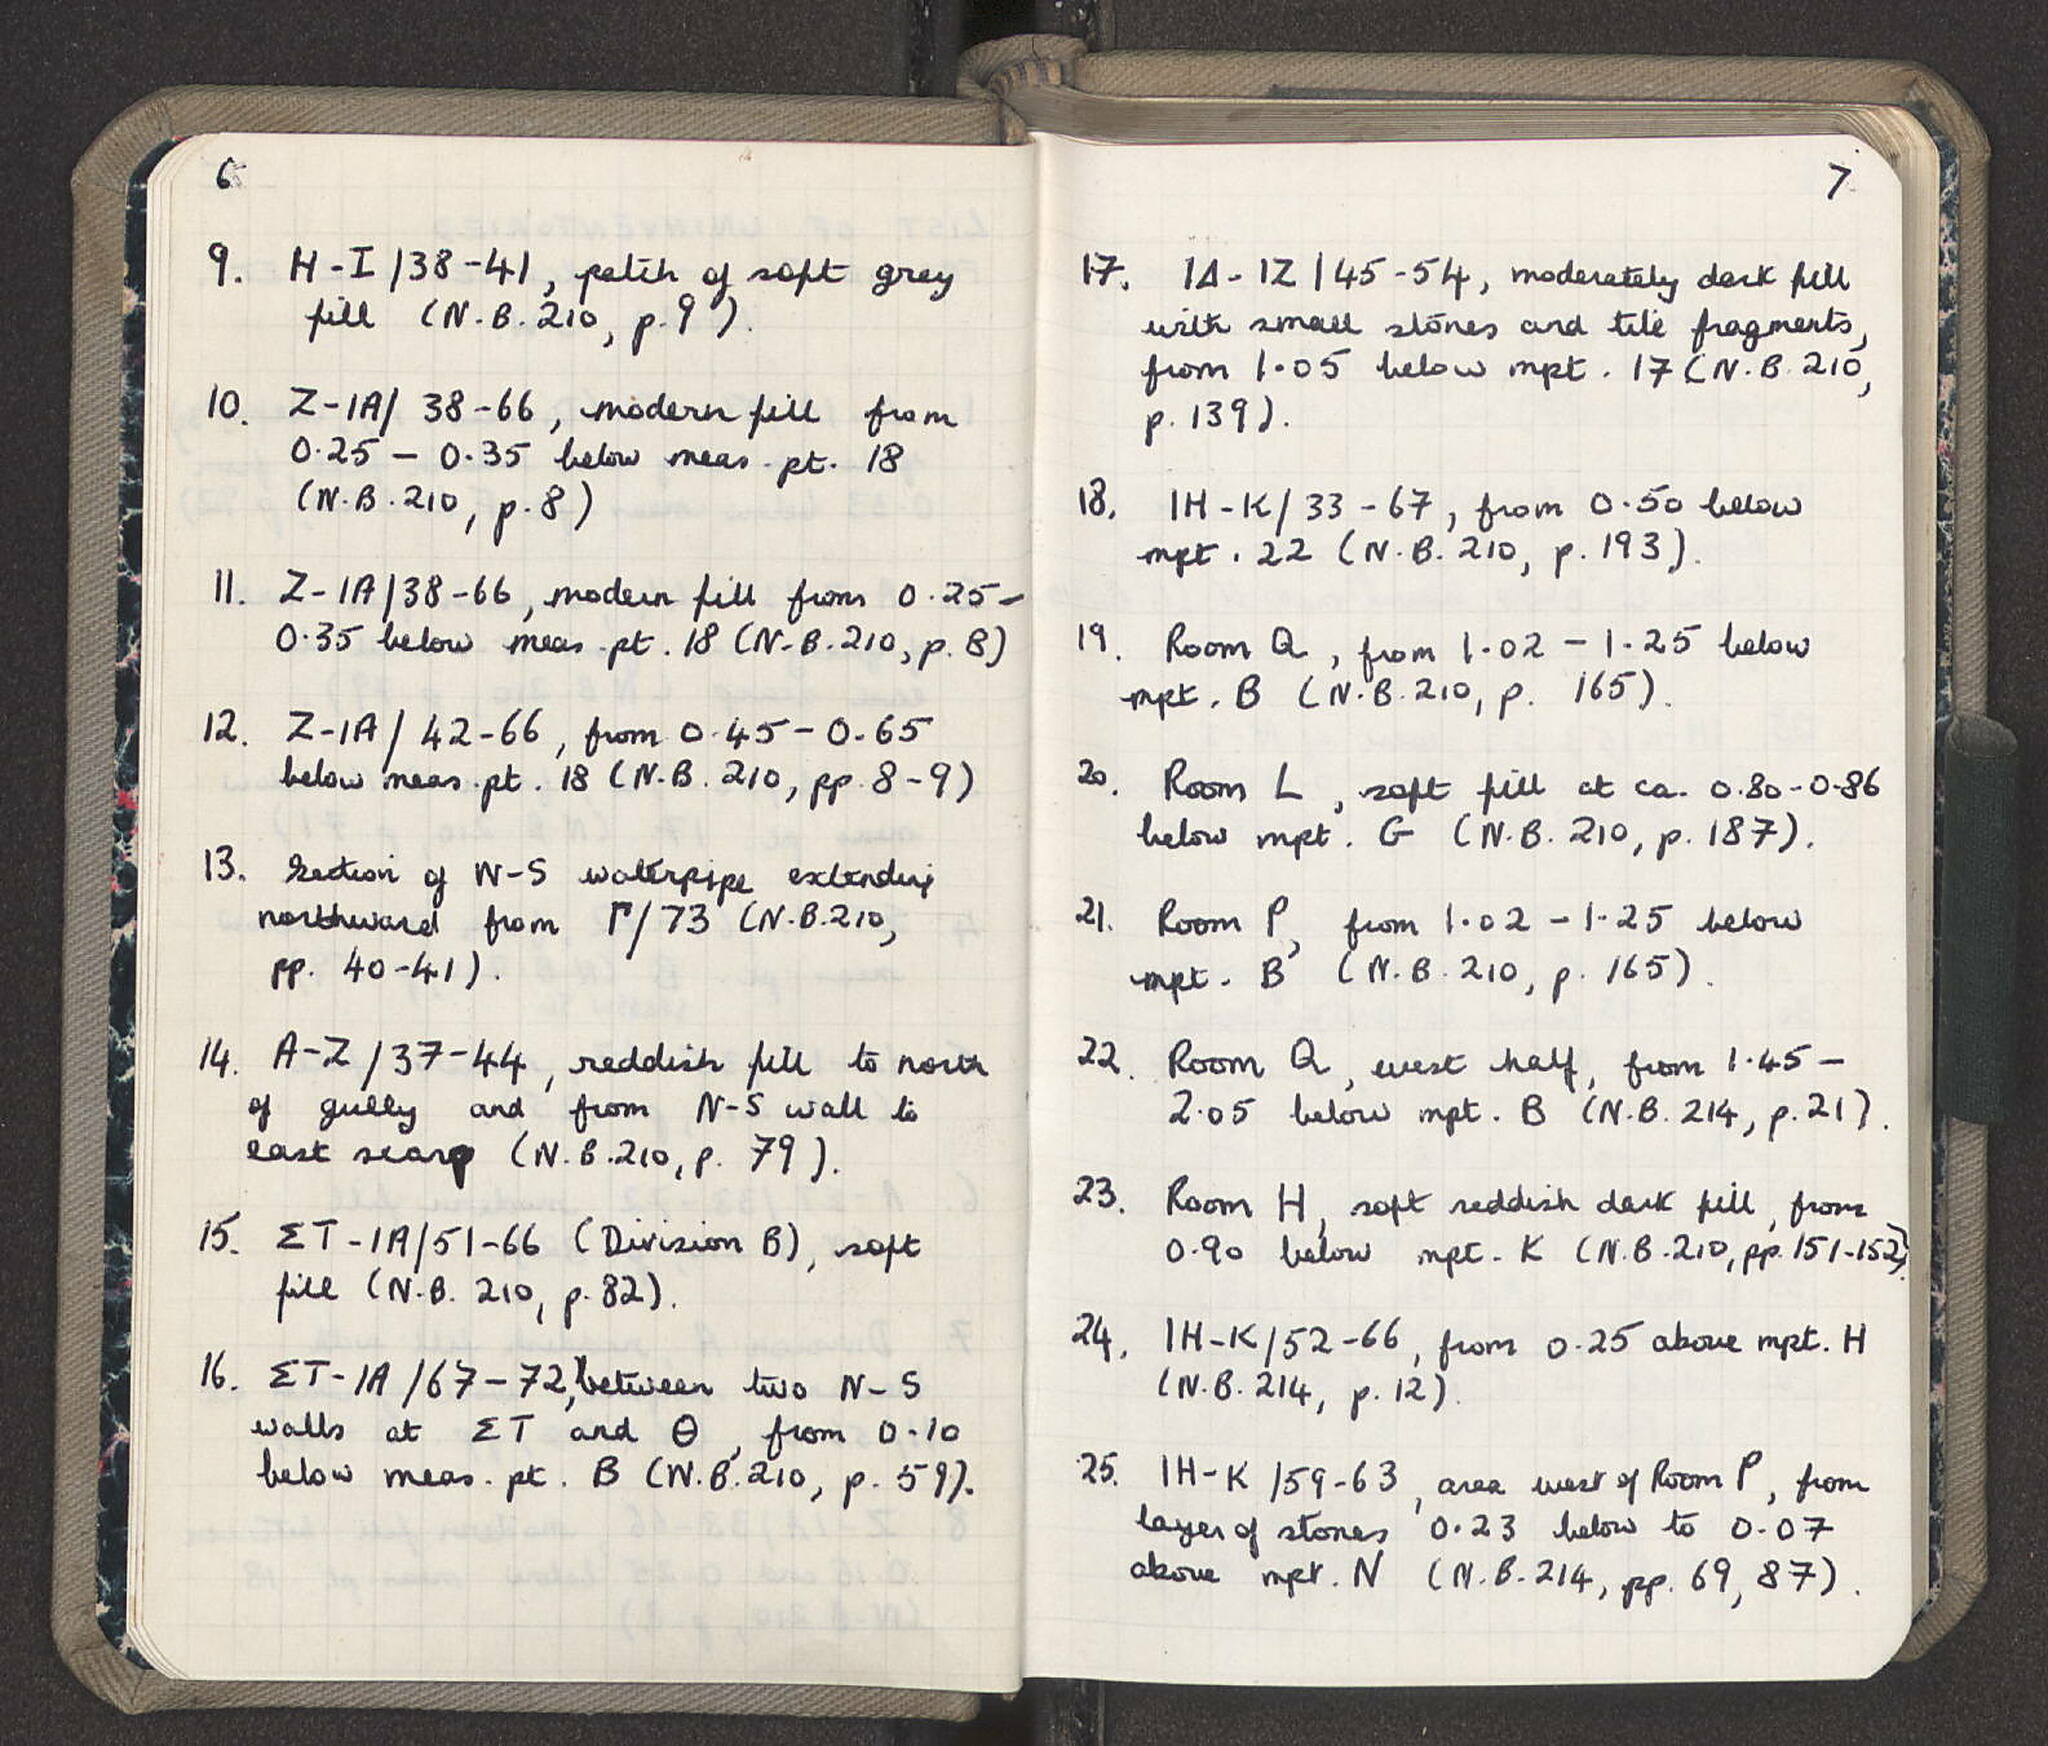 6
9. H-I/38-41, patch of soft grey
fill (N.B.210, p.9).
10. Z-IA/38-66, modern fill from
0.25 - 0.35 below meas. pt. 18
(N.B.210, p.8)
11. Z-IA/38-66, modern fill from 0.25-
0.35 below meas. pt. 18 (N.B.210, p.8)
12. Z-IA/42-66, from 0.45-0.65
below meas. pt. 18 (N.B. 210, pp. 8-9)
13. Section of N-S waterpipe extending
northward from Γ/73 (N.B.210,
pp. 40-41).
14. A-Z/37-44, reddish fill to north
of gully and from N-S wall to
east scarp (N.B.210, p. 79).
15. ΣT-IA/51-66 (Division B), soft
fill (N.B. 210, p.82).
16. ΣT-IA/67-72, between two N-S
walls at ΣT and Θ, from 0.10
below meas. pt. B (N.B.210, p. 59).
7
17. IΔ-IZ/45-54, moderately dark fill
with small stones and tile fragments,
from 1.05 below mpt. 17 (N.B.210,
p. 139).
18. IH-K/33-67, from 0.50 below
mpt. 22 (N.B.210, p. 193).
19. Room Q, from 1.02 - 1.25 below
mpt. B (N.B.210, p. 165).
20. Room L, soft fill at ca. 0.80-0.86
below mpt. G (N.B.210, p.187).
21. Room P, from 1.02 - 1.25 below
mpt. B (N.B.210, p. 165).
22. Room Q, west half, from 1.45-
2.05 below mpt. B (N.B.214, p.21).
23. Room H, soft reddish dark fill, from
0.90 below mpt. K (N.B.210, pp.151-152).
24. IH-K/52-66, from 0.25 above mpt. H
(N.B.214, p.12).
25. IH-K/59-63, area west of Room P, from
layer of stones 0.23 below to 0.07
above mpt. N (N.B.214, pp. 69, 87).